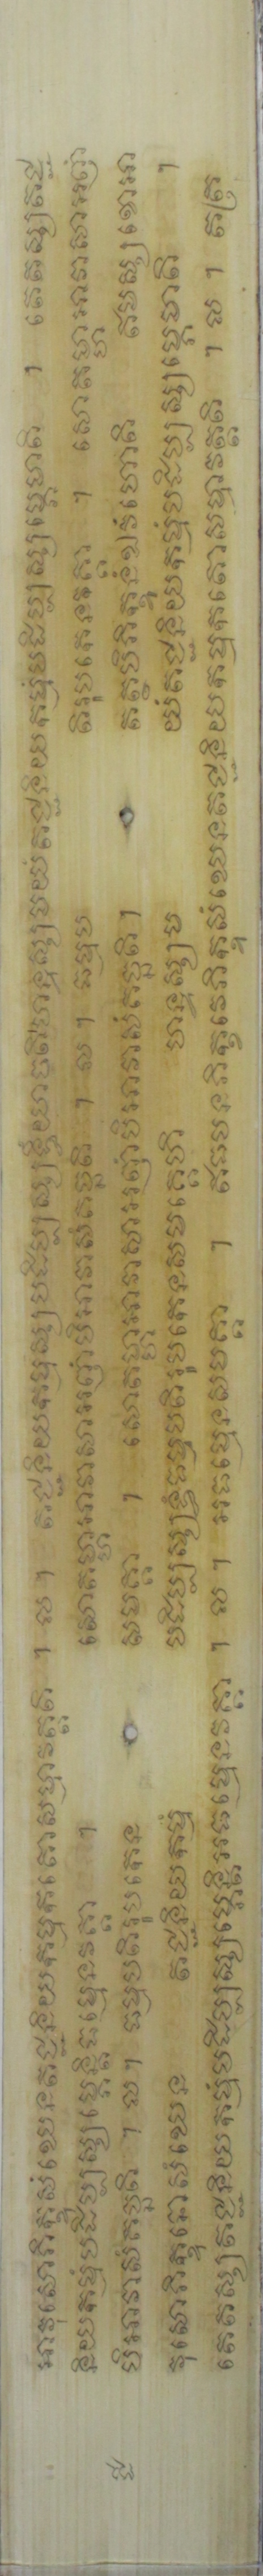 អាវុសោភិក្ខុសំឃេនតជ្ជនិយកម្មកតោសម្មាវត្តតិ ។ ល ។ តជ្ជនិយកម្មស្សបដិប្បស្សទ្ធិំយាចតិហន្ទស្សមយំតជ្ជនិយកម្មំបដិប្បស្សម្ភេមាតិ ។ តេតស្សតជ្ជ
និយកម្មំបដិប្បស្សម្ភេន្តិធម្មេនវគ្គា ។ សោតម្ហាអាវាសាអញ្ញំបិអាវាសំគច្ឆតិ ។ ល ។ ធម្មប តិរូបកេនវគ្គា ។ សោតម្ហាអាវាសាអញ្ញំ
បិអាវាសំគច្ឆតិ ។ ល ។ ធម្មបតិរូបកេន សមគ្គា ។ សោតម្ហាអាវាសាអញ្ញំបិអាវាសំគច្ឆតិ ។ តត្ថបិភិក្ខូនំឯវំហោតិ ឥមស្សខោអា
វុសោភិក្ខុនោសំឃេន តជ្ជនិយកម្មំ បដិប្បស្សទ្ធំធម្មបតិរូបកេនសមគ្គេហិ ហន្ទស្សម យំតជ្ជនិយកម្មំបដិប្បស្សម្ភេមាតិ ។
តេតស្សតជ្ជនិយកម្មំបដិប្បស្សម្ភេន្តិអធម្មេនវគ្គា ។ ល ។ អធម្មេនសមគ្គា ។ ឥធបនភិក្ខវេភិក្ខុសំឃេនតជ្ជនិយកម្មកតោសម្មាវត្តតិ ។ ល ។ តត្រ